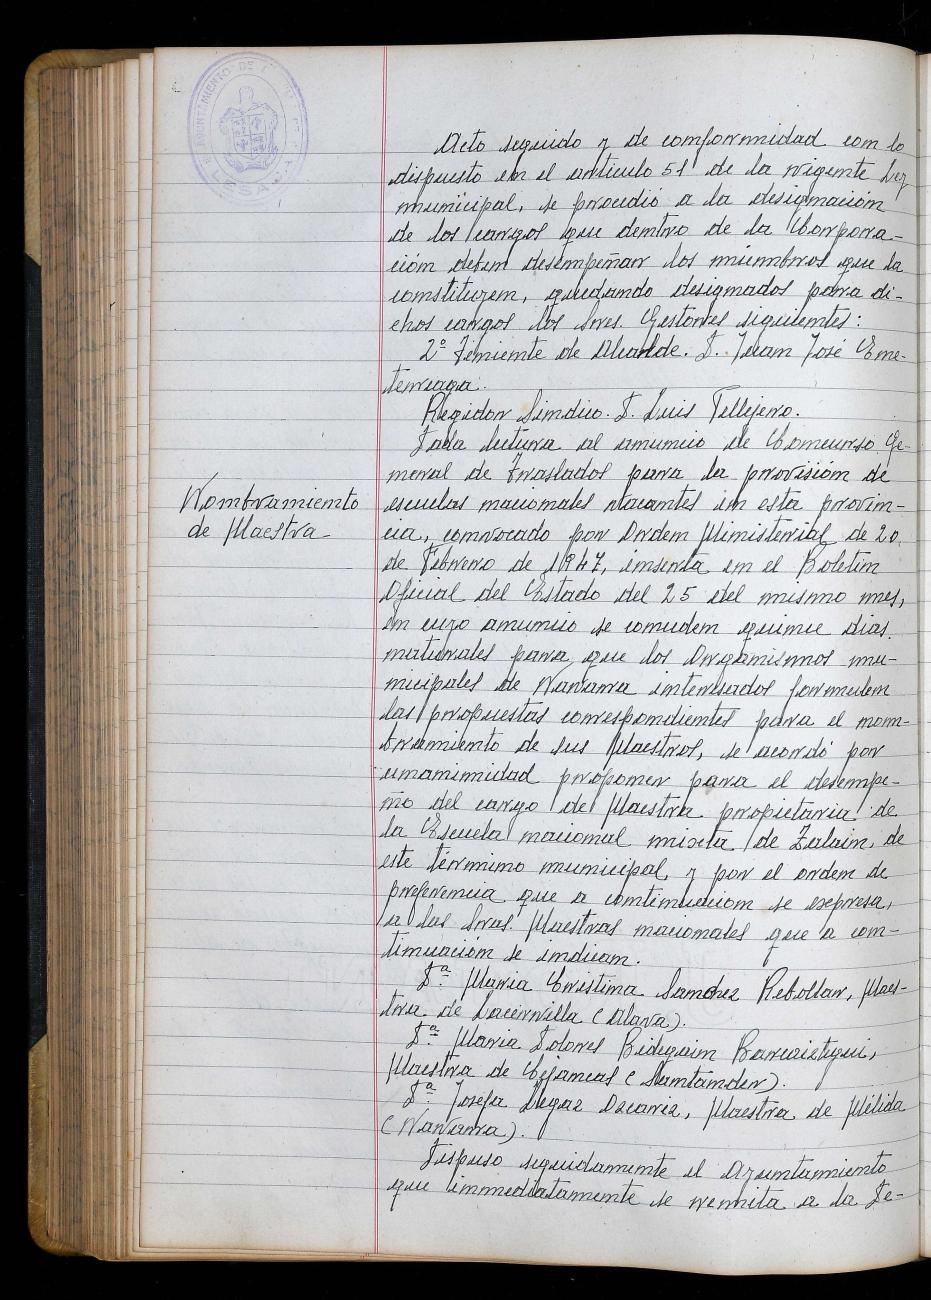 AYUNTAMIENTO DE
LESACA
Acto seguido y de conformidad con lo
dispuesto en el artículo 51 de la vigente Ley
municipal, se procedió a la designación
de los cargos que dentro de la Corpora-
ción deben desempeñar los miembros que la
constituyen, quedando designados para di-
chos cargos los Sres. Gestores siguientes:
2º Teniente de Alcalde. D. Juan José Ene-
terreaga.
Regidor Síndico. D. Luis Tellejero.
Dada lectura al anuncio de Concurso Ge-
neral de Traslados para la provisión de
Nombramiento
de Maestra
escuelas nacionales vacantes en esta provin-
cia, convocado por Orden Ministerial de 20
de Febrero de 1947, inserta en el Boletín
Oficial del Estado del 25 del mismo mes,
en cuyo anuncio se conceden quince días
naturales para que los Organismos mu-
nicipales de Navarra interesados formulen
las propuestas correspondientes para el nom-
bramiento de sus Maestros, se acordó por
unanimidad proponer para el desempe-
ño del cargo de Maestra propietaria de
la Escuela nacional mixta de Zalain, de
este término municipal, y por el orden de
preferencia que a continuación se expresa,
a las Sras. Maestras nacionales que a con-
tinuación se indican.
Dª. Maria Cristina Sanchez Rebollar, Maes-
tra de Lacervilla (Alava).
Dª. Maria Dolores Bidegain Barcaiztegui,
Maestra de Cejancas (Santander).
Dª. Josefa Legaz Ozcariz, Maestra de Mélida
(Navarra).
Dispuso seguidamente el Ayuntamiento
que inmediatamente se remita a la De-